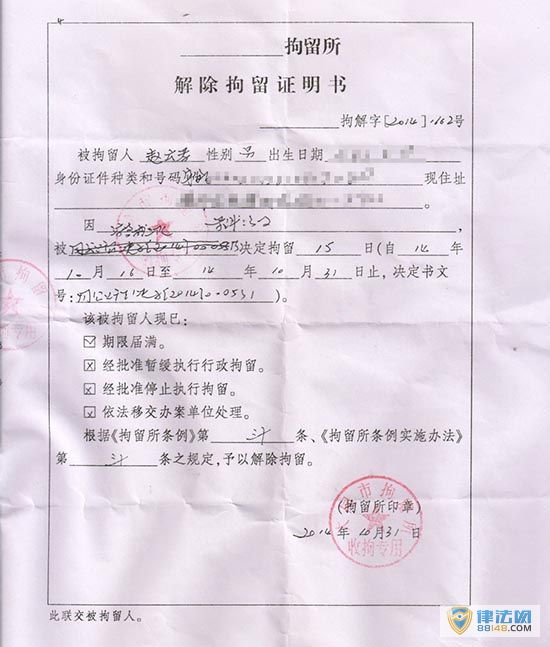 拘留所
解除拘留证明书
拘解字[2014]1162号
被拘留人 性别 男 出生日期
身份证件种类和号码 现住址
因
被 决定拘留 15 日(自 14 年
10 月 16 日至 14 年 10 月 31 日止,决定书文
号: [2014] 0531 )。
该被拘留人现已:
☑ 期限届满。
☒ 经批准暂缓执行行政拘留。
☒ 经批准停止执行拘留。
☒ 依法移交办案单位处理。
根据《拘留所条例》第 条、《拘留所条例实施办法》
第 条之规定,予以解除拘留。
(拘留所印章)
2014 年 10 月 31 日
收拘专用
此联交被拘留人。
律法网
88148.com